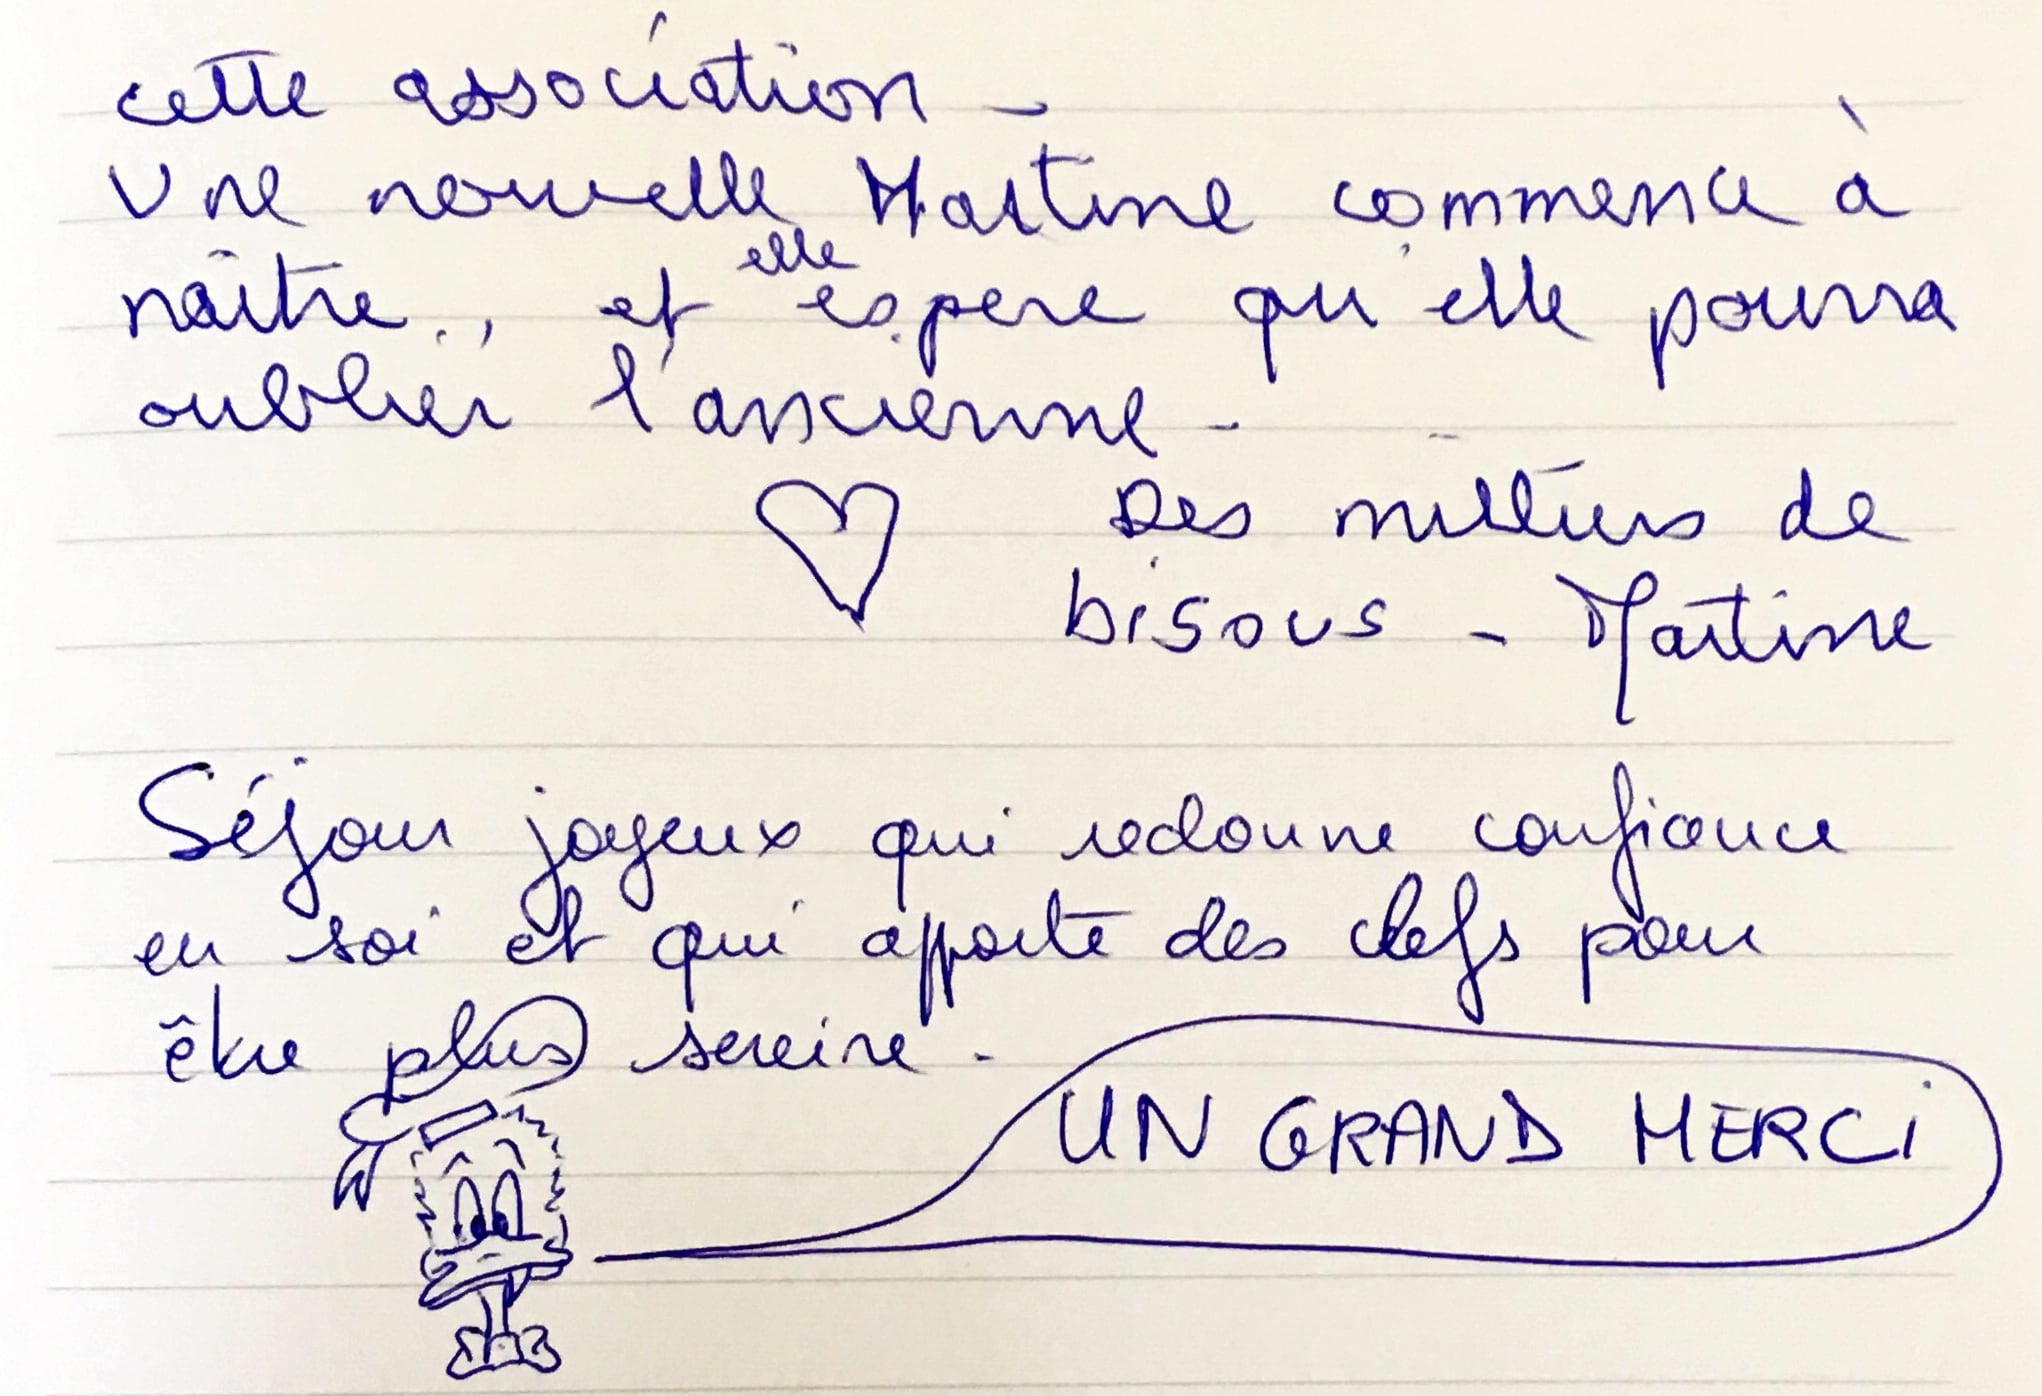 cette association -
Une nouvelle Martine commence à
naître., et elle espere qu'elle pourra
oublier l'ancienne -
Des milliers de
bisous - Martine
Séjour joyeux qui redonne confiance
en soi et qui apporte des clefs pour
être plus sereine.
UN GRAND MERCI